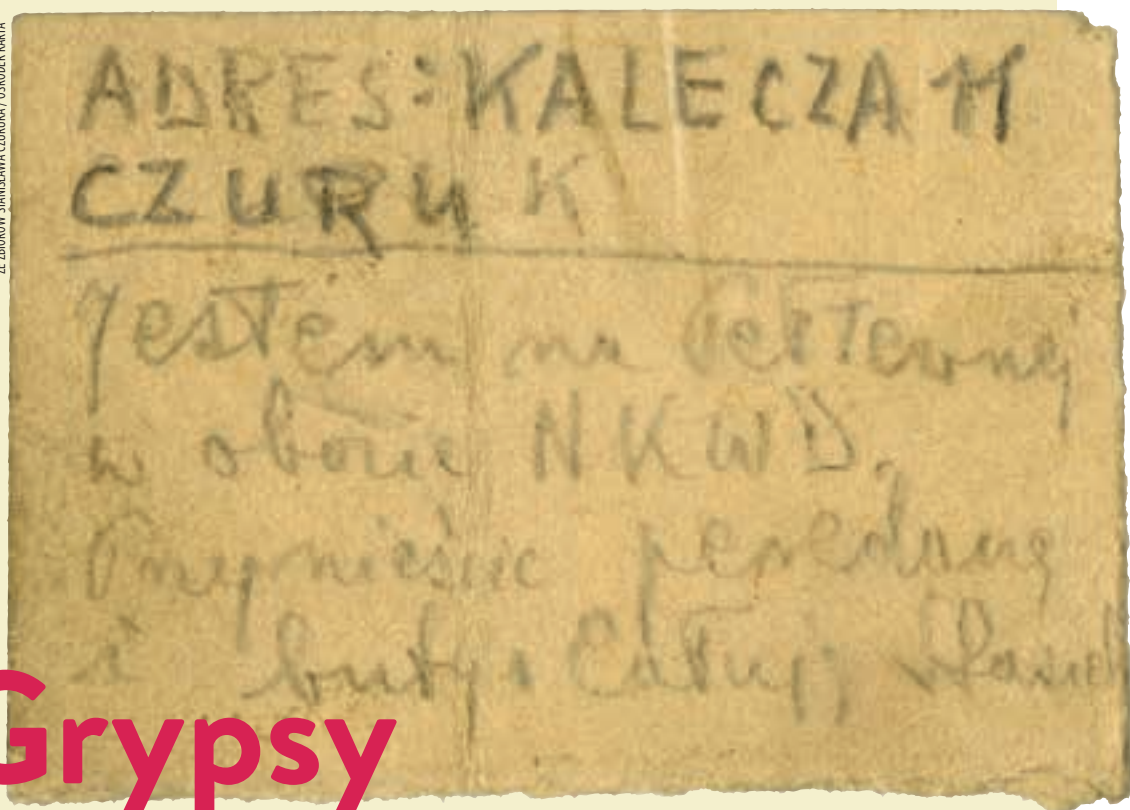 ZE ZBIORÓW STANISŁAWA CZURUKA / OŚRODEK KARTA
ADRES: KALECZA 11
CZURUK
Jestem na Pełtewnej
w obozie NKWD,
Przynieście
i buty. Całuję
Grypsy